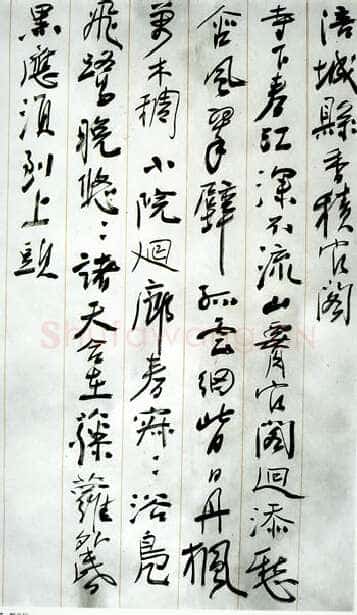 涪城縣香積官閣
寺下春江深不流山腰官閣迥添愁
含風翠壁孤雲細背日丹楓
萬木稠小院迴廊春寂々浴鳧
飛鷺晚悠々諸天合在藤蘿外昏
黑應須到上頭